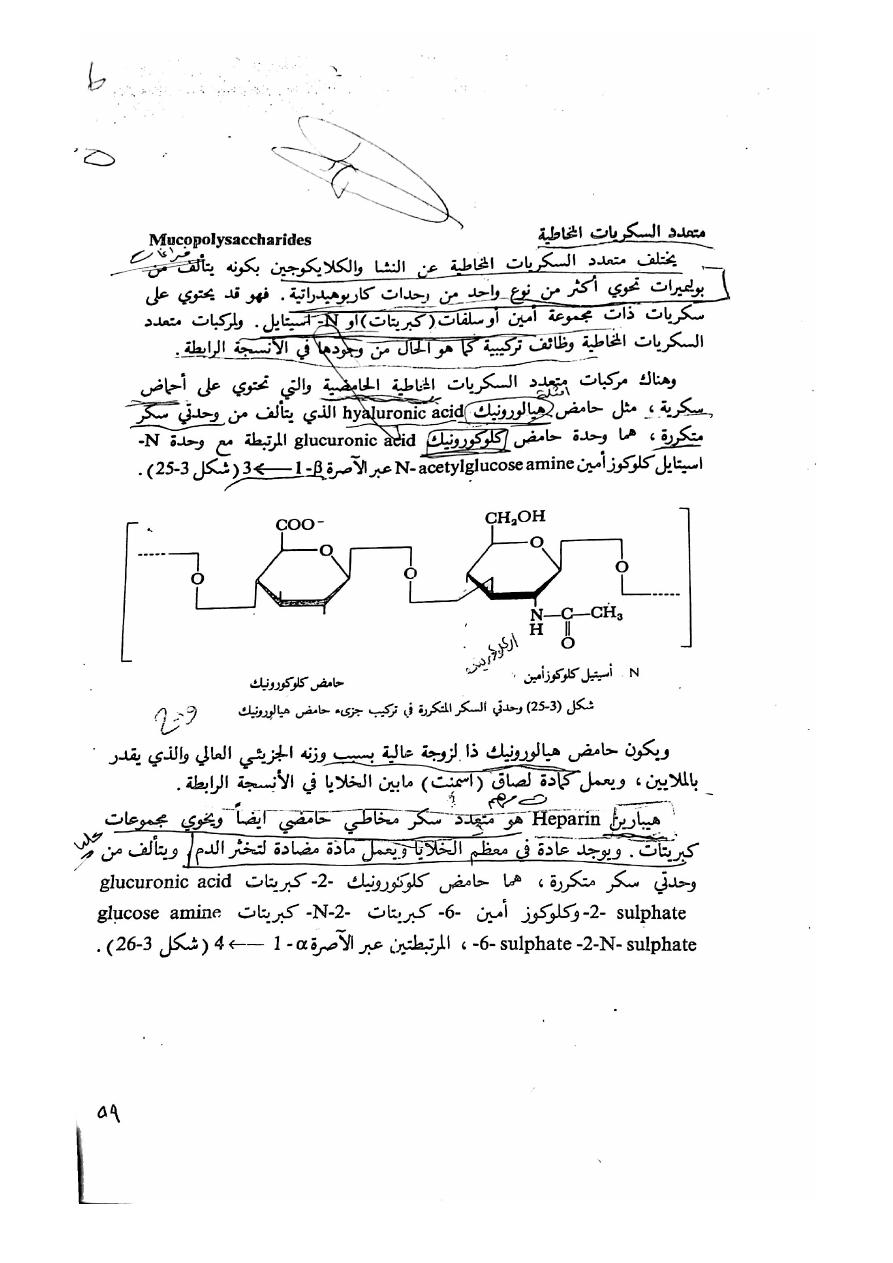 متعدد السكريات المخاطية Mucopolysaccharides
يختلف متعدد السكريات المخاطية عن النشا والكلايكوجين بكونه يتألف من
بوليمرات تحوي أكثر من نوع واحد من وحدات كاربوهيدراتية. فهو قد يحتوي على
سكريات ذات مجموعة أمين أو سلفات (كبريتات) او N- اسيتايل. ولمركبات متعدد
السكريات المخاطية وظائف تركيبية كما هو الحال من وجودها في الأنسجة الرابطة.
وهناك مركبات متعدد السكريات المخاطية الحامضية والتي تحتوي على أحماض
سكرية، مثل حامض هيالورونيك hyaluronic acid الذي يتألف من وحدتي سكر
متكررة، هما وحدة حامض كلوكورونيك glucuronic acid المرتبطة مع وحدة N-
اسيتايل كلوكوز أمين N- acetylglucose amine عبر الآصرة β-1 ⟶ 3 (شكل 3-25).
COO-
CH2OH
O
O
O
O
O
N—C—CH3
H
O
N أسيتيل كلوكوز أمين
حامض كلوكورونيك
شكل (3-25) وحدتي السكر المتكررة في تركيب جزيء حامض هيالورونيك
ويكون حامض هيالورونيك ذا لزوجة عالية بسبب وزنه الجزيئي العالي والذي يقدر
بالملايين، ويعمل كمادة لصاق (اسمنت) مابين الخلايا في الأنسجة الرابطة.
هيبارين Heparin هو متعدد سكر مخاطي حامضي ايضاً ويحوي مجموعات
كبريتات. ويوجد عادة في معظم الخلايا ويعمل مادة مضادة لتخثر الدم ويتألف من
وحدتي سكر متكررة، هما حامض كلوكورونيك -2- كبريتات glucuronic acid
-2- sulphate وكلوكوز أمين -6- كبريتات -2-N- كبريتات glucose amine
-6- sulphate -2-N- sulphate، المرتبطتين عبر الآصرة α-1 ⟶ 4 (شكل 3-26).
٥٩